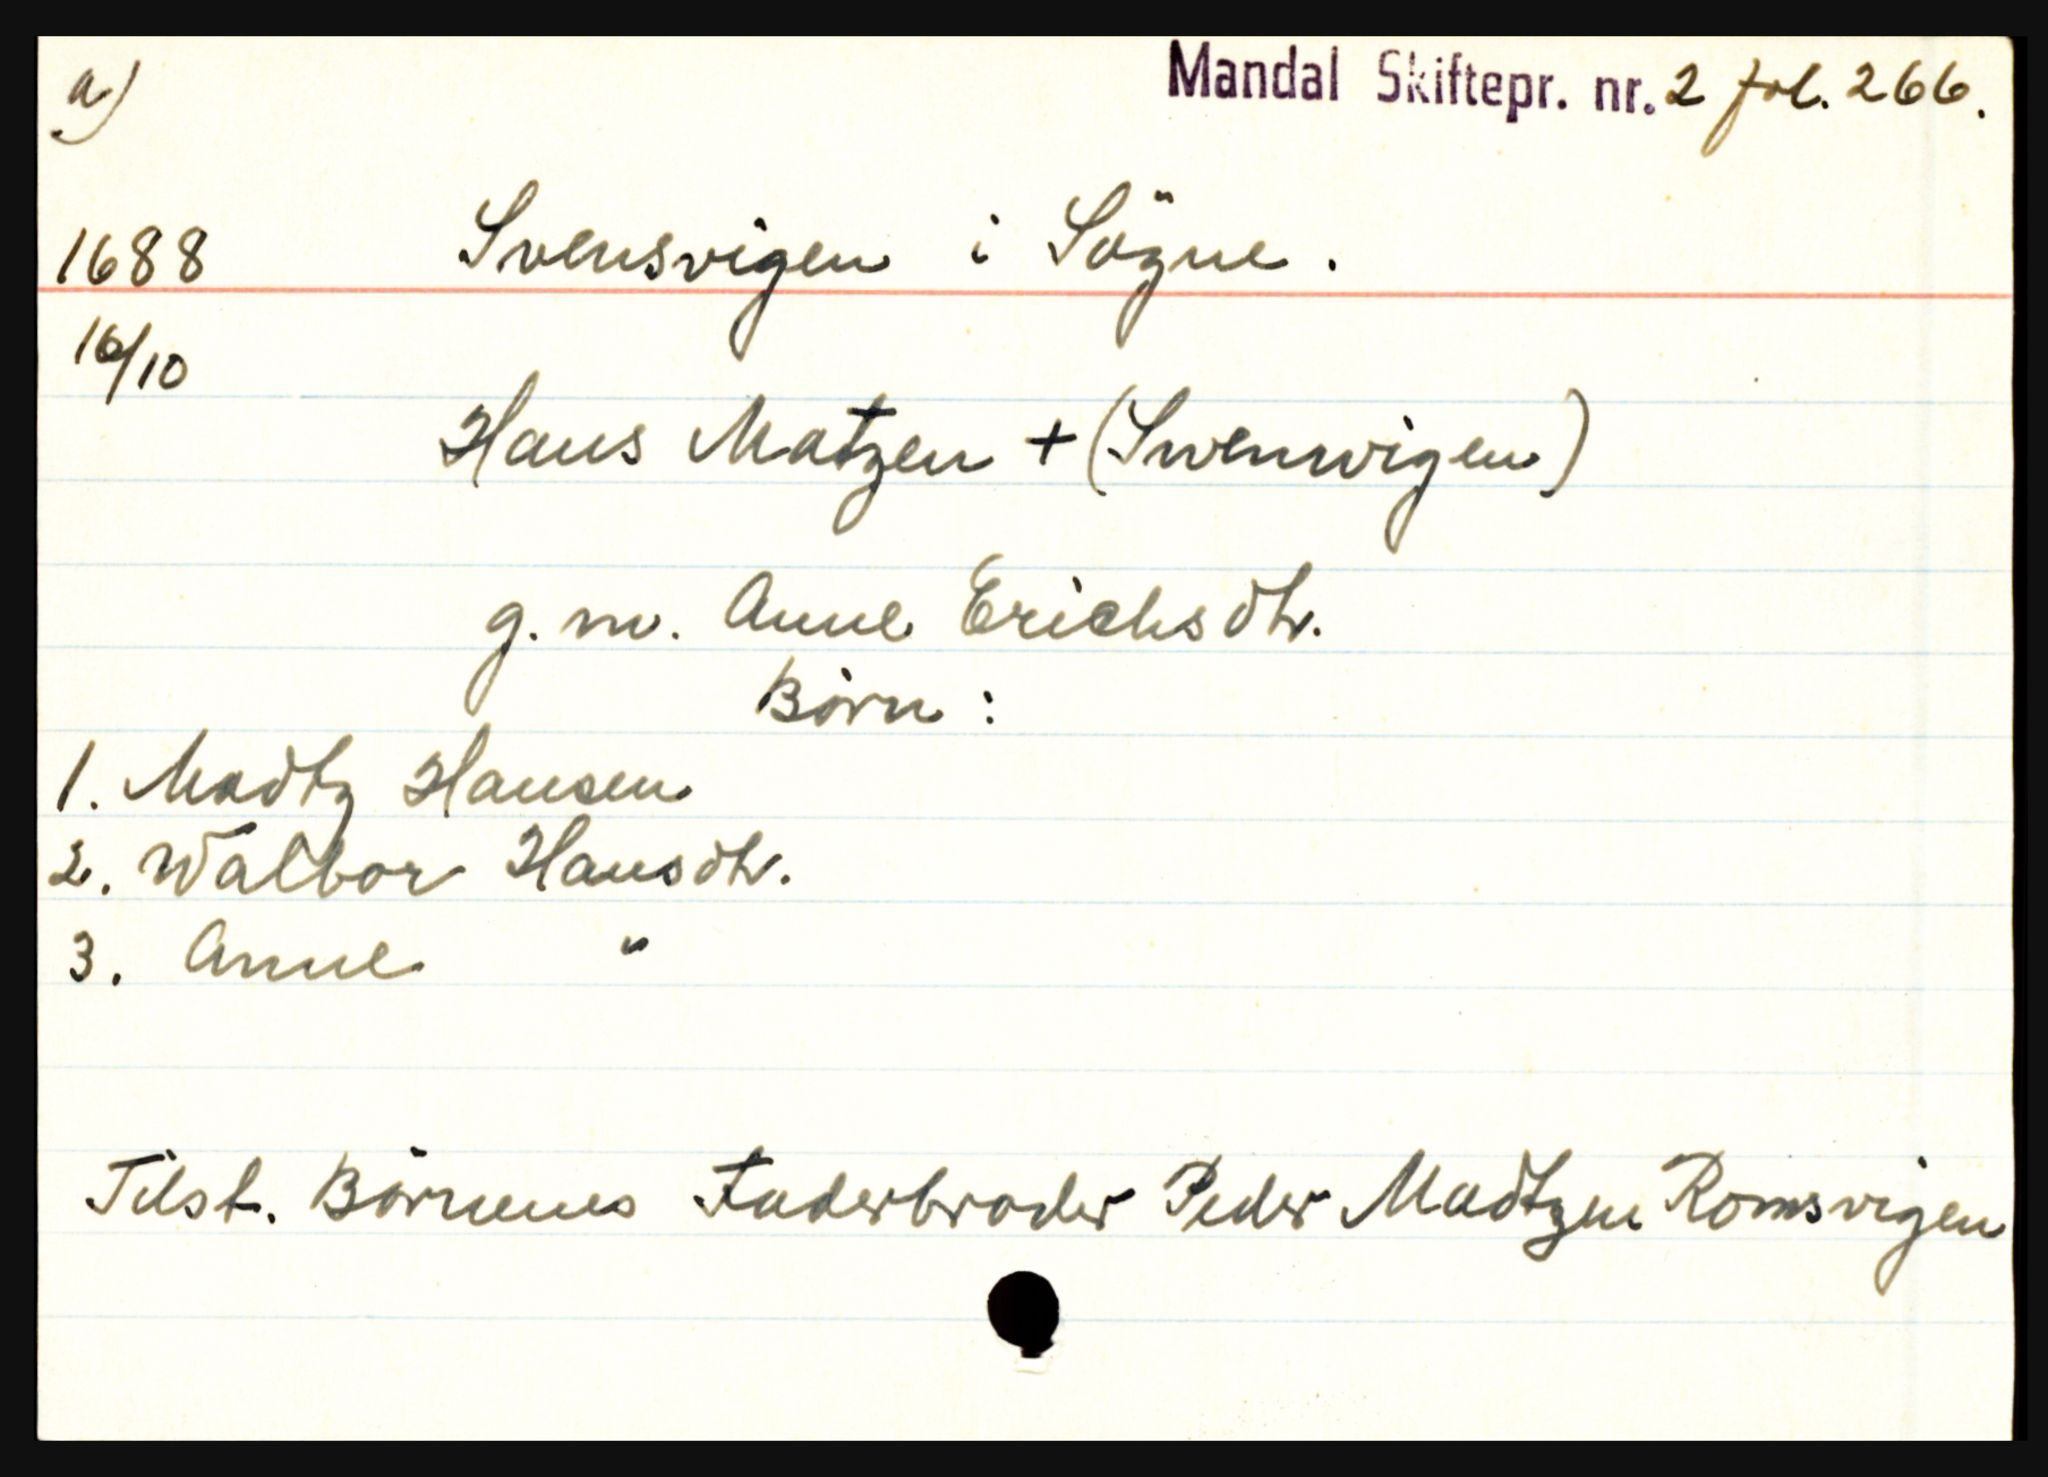 a)
Mandal Skiftepr. nr. 2 fol. 266.
1688 Svensvigen i Sögne.
16/10
Hans Matzen + (Swenwigen)
g. m. Anne Erichsdtr.
Börn:
1. Madtz Hansen
2. Walbor Hansdtr.
3. Anne "
Tilst. Börnenes Faderbroder Peder Madtzen Romsvigen